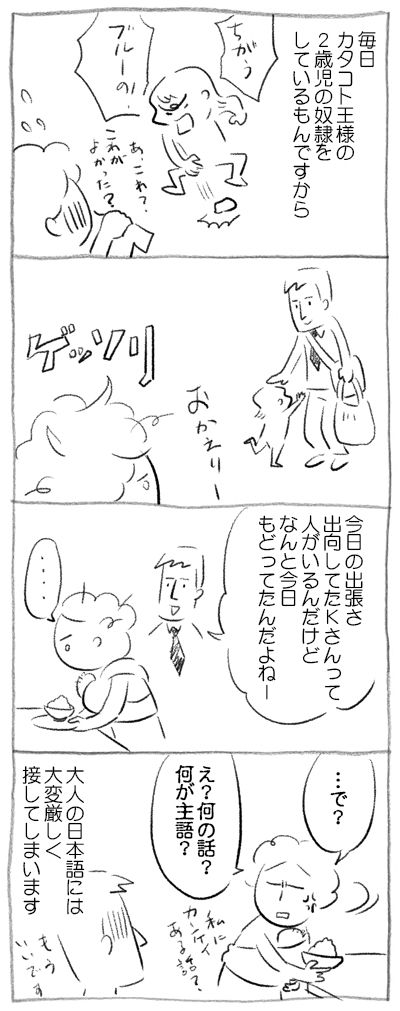 毎日
カタコト王様の
2歳児の奴隷を
しているもんですから
ちがう
ブルーの!
あ、これ?
これが
よかった?
おかえりー
ゲッソリ
今日の出張さ
出向してたKさんって
人がいるんだけど
なんと今日
もどってたんだよねー
・・・・
…で?
え?何の話?
何が主語?
私に
カンケイ
ある話?
大人の日本語には
大変厳しく
接してしまいます
もう
いいです